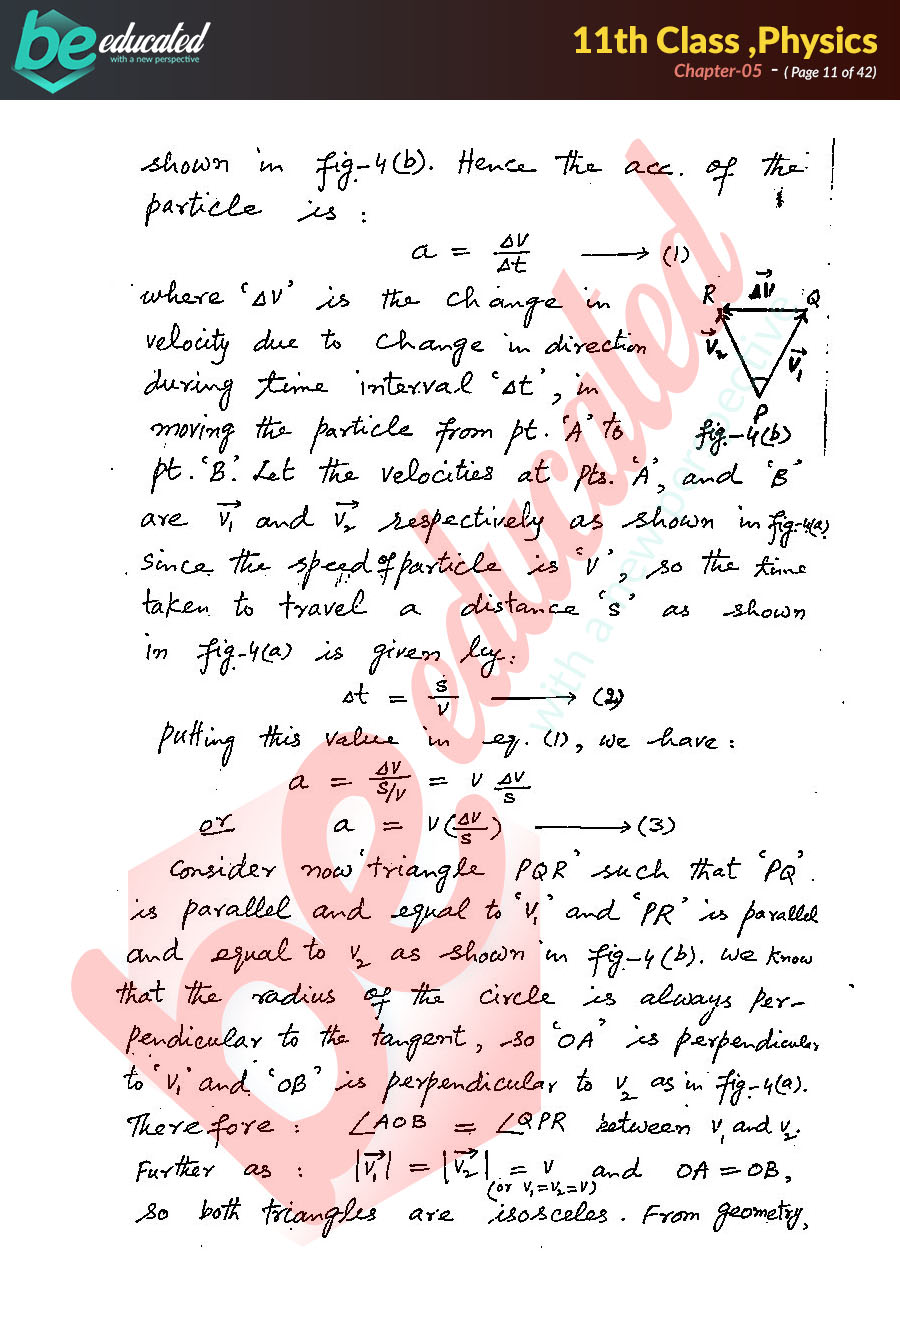 be educated
with a new perspective
11th Class ,Physics
Chapter-05 - ( Page 11 of 42)
shown in fig-4(b). Hence the acc. of the
particle is :
a = ΔV/Δt ⟶ (1)
where 'ΔV' is the change in
velocity due to change in direction
during time interval 'Δt', in
moving the particle from pt. 'A' to
pt. 'B'. Let the velocities at pts. 'A', and 'B'
are V⃗₁ and V⃗₂ respectively as shown in fig-4(a)
Since the speed of particle is 'V', so the time
taken to travel a distance 's' as shown
in fig-4(a) is given by:
Δt = S/V ⟶ (2)
Putting this value in eq. (1), we have :
a = ΔV/(S/V) = V ΔV/S
or a = V(ΔV/S) ⟶ (3)
Consider now 'triangle PQR' such that 'PQ'
is parallel and equal to 'V₁' and 'PR' is parallel
and equal to V₂ as shown in fig-4(b). We know
that the radius of the circle is always per-
pendicular to the tangent, so 'OA' is perpendicular
to 'V₁' and 'OB' is perpendicular to V₂ as in fig-4(a).
Therefore : ∠AOB = ∠QPR between V₁ and V₂.
Further as : |V⃗₁| = |V⃗₂| = V and OA = OB,
(or V₁=V₂=V)
so both triangles are isosceles. From geometry,
R ΔV⃗ Q
V⃗₂ V⃗₁
P
fig-4(b)
be educated
with a new perspective